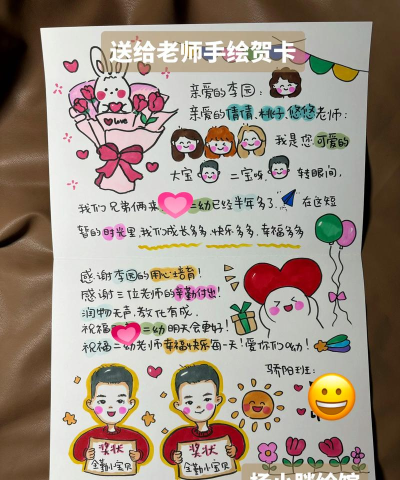 送给老师手绘贺卡
亲爱的李园:
亲爱的倩倩,桃子,悠悠老师:
love
我是您可爱的
大宝 二宝呀,转眼间,
我们兄弟俩来 二幼已经半年多了. 在这短
暂的时光里,我们成长多多.快乐多多.幸福多多
感谢李园的用心培育!
感谢三位老师的辛勤付出!
润物无声,教化有成,
祝福 二幼明天会更好!
祝福二幼老师幸福快乐每一天!爱你们哟!
骄阳班:
奖状
全勤小宝贝
奖状
全勤小宝贝